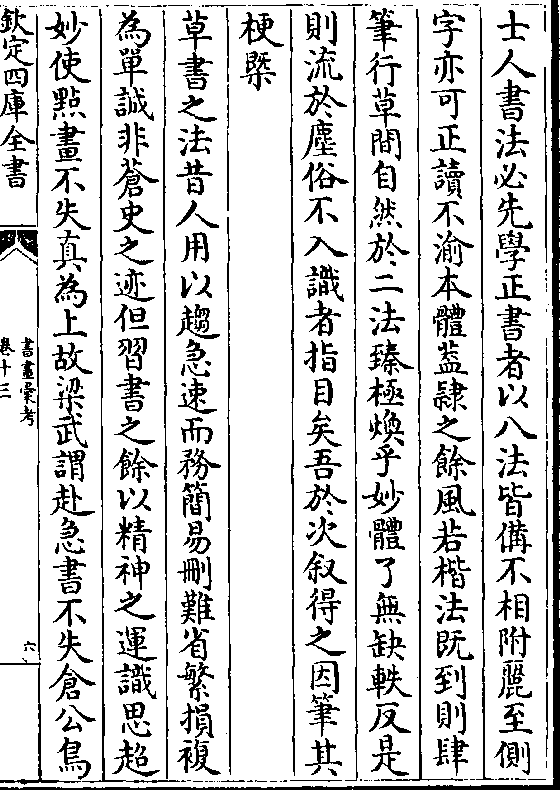 士人書法必先學正書者以八法皆備不相附麗至側
字亦可正讀不渝本體葢隷之餘風若楷法既到則肆
筆行草間自然於二法臻極煥乎妙體了無缺軼反是
則流於塵俗不入識者指目矣吾於次叙得之因筆其
梗槩
草書之法昔人用以趨急速而務簡易刪難省繁損複
為單誠非蒼史之迹但習書之餘以精神之運識思超
妙使㸃畫不失真為上故梁武謂赴急書不失倉公鳥
欽定四庫全書
書畫彚考
卷十三
六